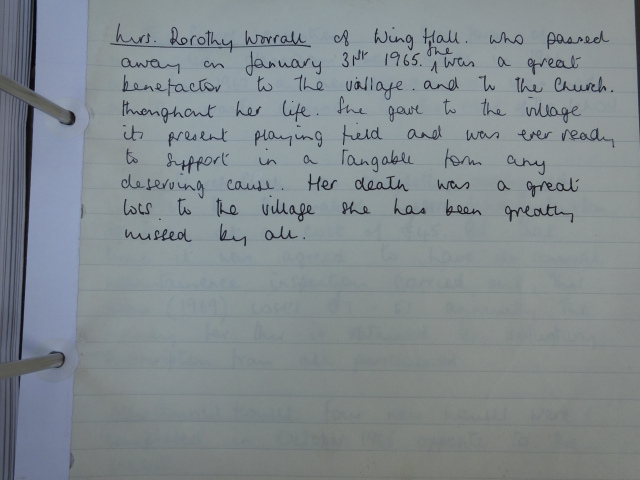 Mrs. Dorothy Worrall of Wing Hall. who passed
away on January 31st 1965. She was a great
benefactor to the village. and to the Church.
throughout her life. She gave to the village
its present playing field and was ever ready
to support in a Tangable form any
deserving cause. Her death was a great
loss to the village she has been greatly
missed by all.